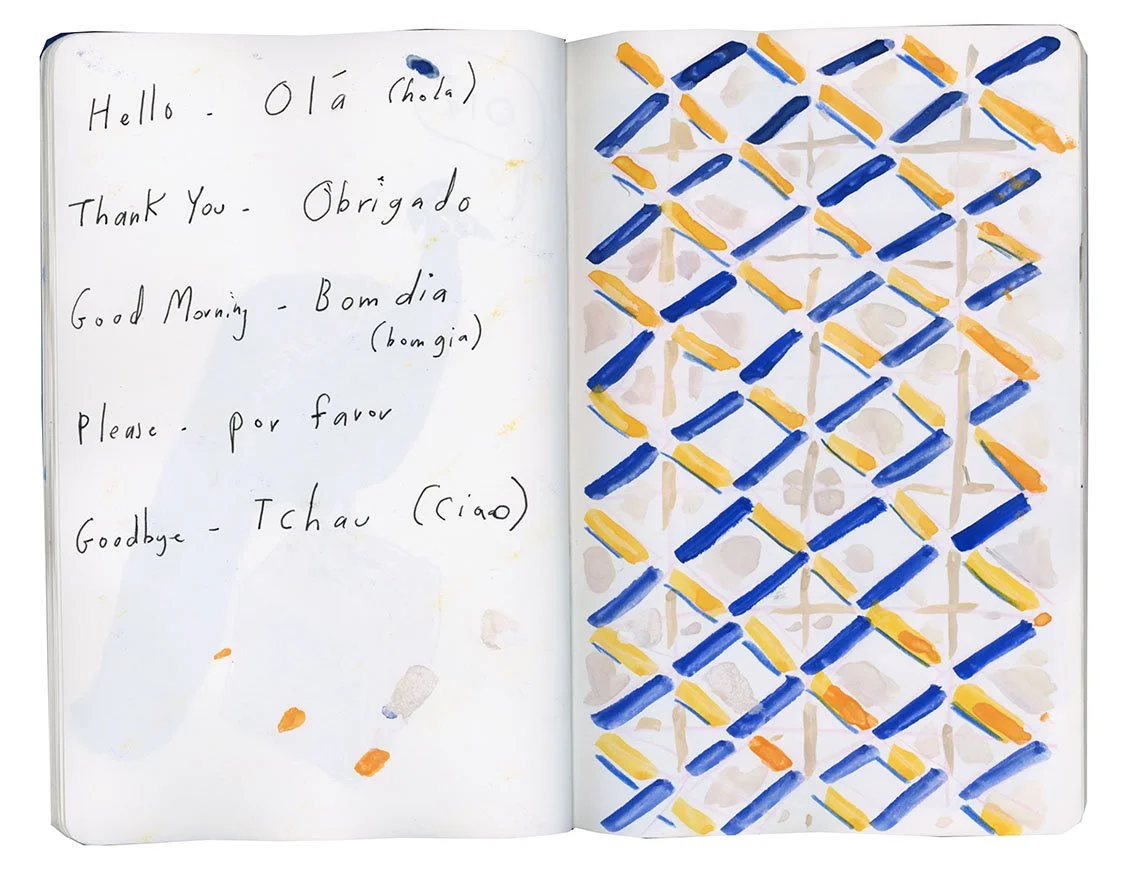 Hello - Olá (hola)
Thank You - Obrigado
Good Morning - Bom dia
(bom gia)
Please - por favor
Goodbye - Tchau (Ciao)